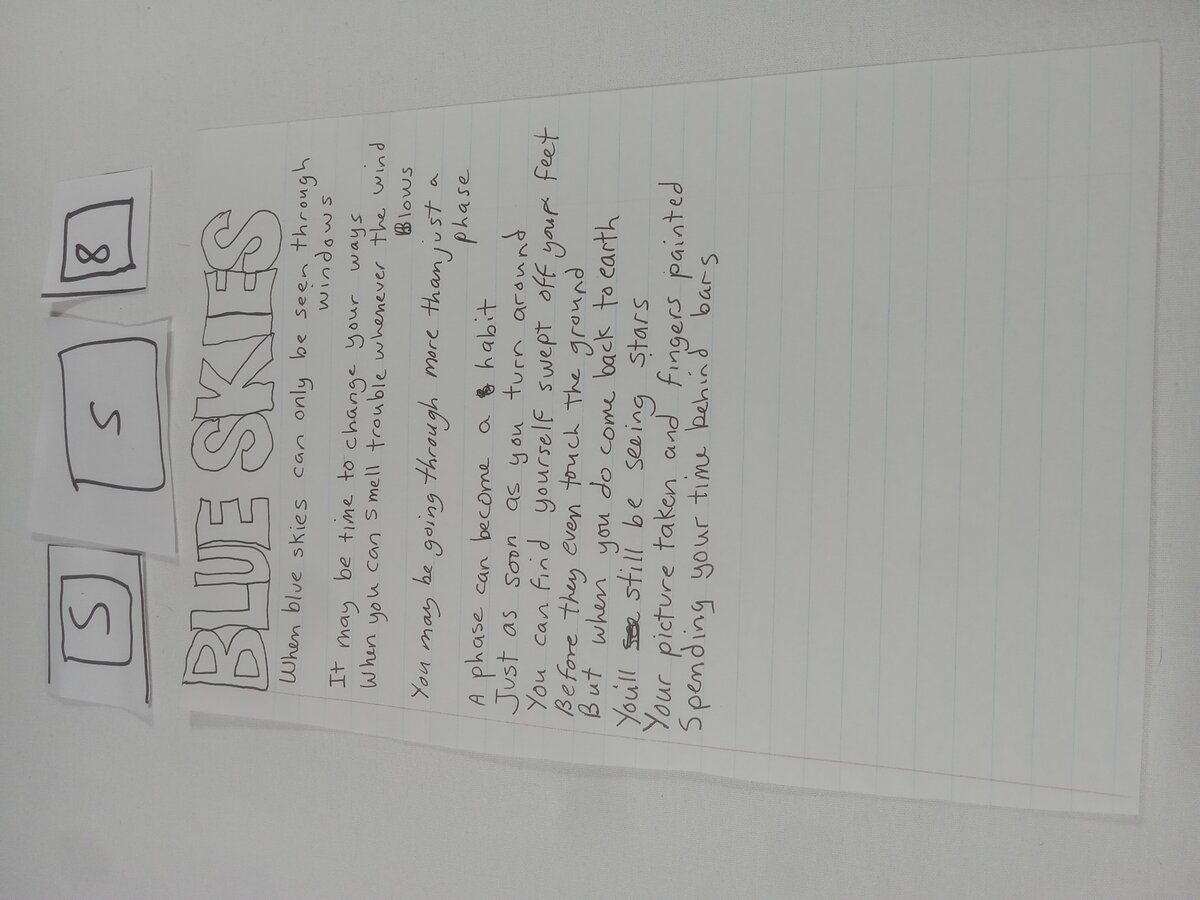 S S 8
BLUE SKIES
When blue skies can only be seen through
windows
It may be time to change your ways
When you can smell trouble whenever the wind
Blows
You may be going through more than just a
phase
A phase can become a habit
Just as soon as you turn around
You can find yourself swept off your feet
Before they even touch the ground
But when you do come back to earth
You'll still be seeing stars
Your picture taken and fingers painted
Spending your time behind bars